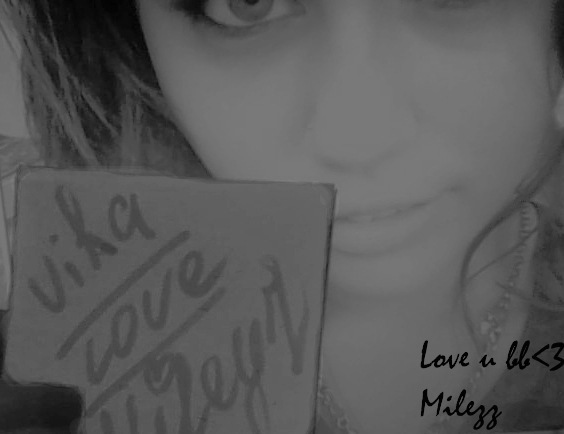 Vika
Love
Love u bb<3
Milezz